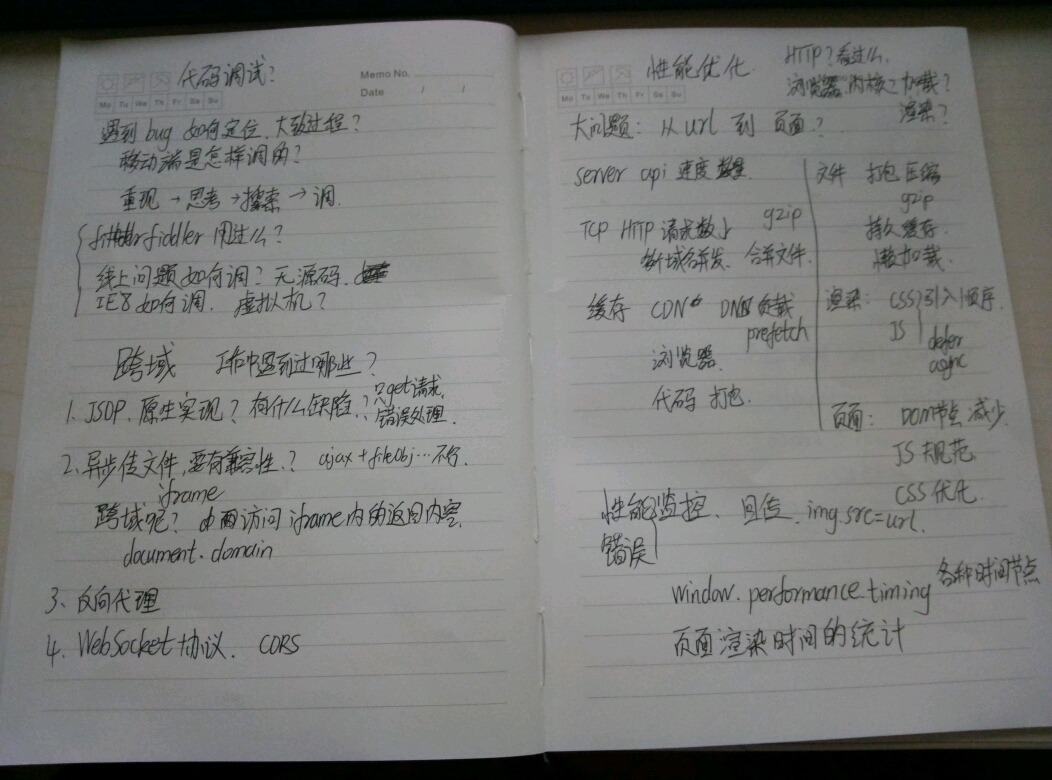 代码调试?
Memo No.
Mo Tu We Th Fr Sa Su
Date / /
遇到 bug 如何定位、大致过程?
移动端是怎样调的?
重现 → 思考 → 搜索 → 调.
fiddler 用过么?
线上问题如何调? 无源码.
IE8 如何调. 虚拟机?
跨域 工作中遇到过哪些?
1. JSOP. 原生实现? 有什么缺陷.? 只get请求.
错误处理.
2. 异步传文件, 要有兼容性.? ajax + fileObj … 不行.
iframe
跨域呢? 由 访问 iframe 内的返回内容.
document.domain
3、反向代理
4. WebSocket 协议. CORS
性能优化
Mo Tu We Th Fr Sa Su
HTTP? 看过么.
浏览器内核? 加载?
渲染?
大问题: 从 url 到 页面?
server api 速度
TCP HTTP 请求数↓ gzip
域名并发. 合并文件.
缓存 CDN DNS 负载
prefetch
浏览器.
代码 打包.
文件 打包 压缩
gzip
持久缓存.
懒加载.
渲染: CSS 引入顺序.
JS defer
async
页面: DOM节点 减少.
JS 规范.
CSS 优化.
性能监控. 回传. img.src=url.
错误
window.performance.timing 各种时间节点
页面渲染时间的统计